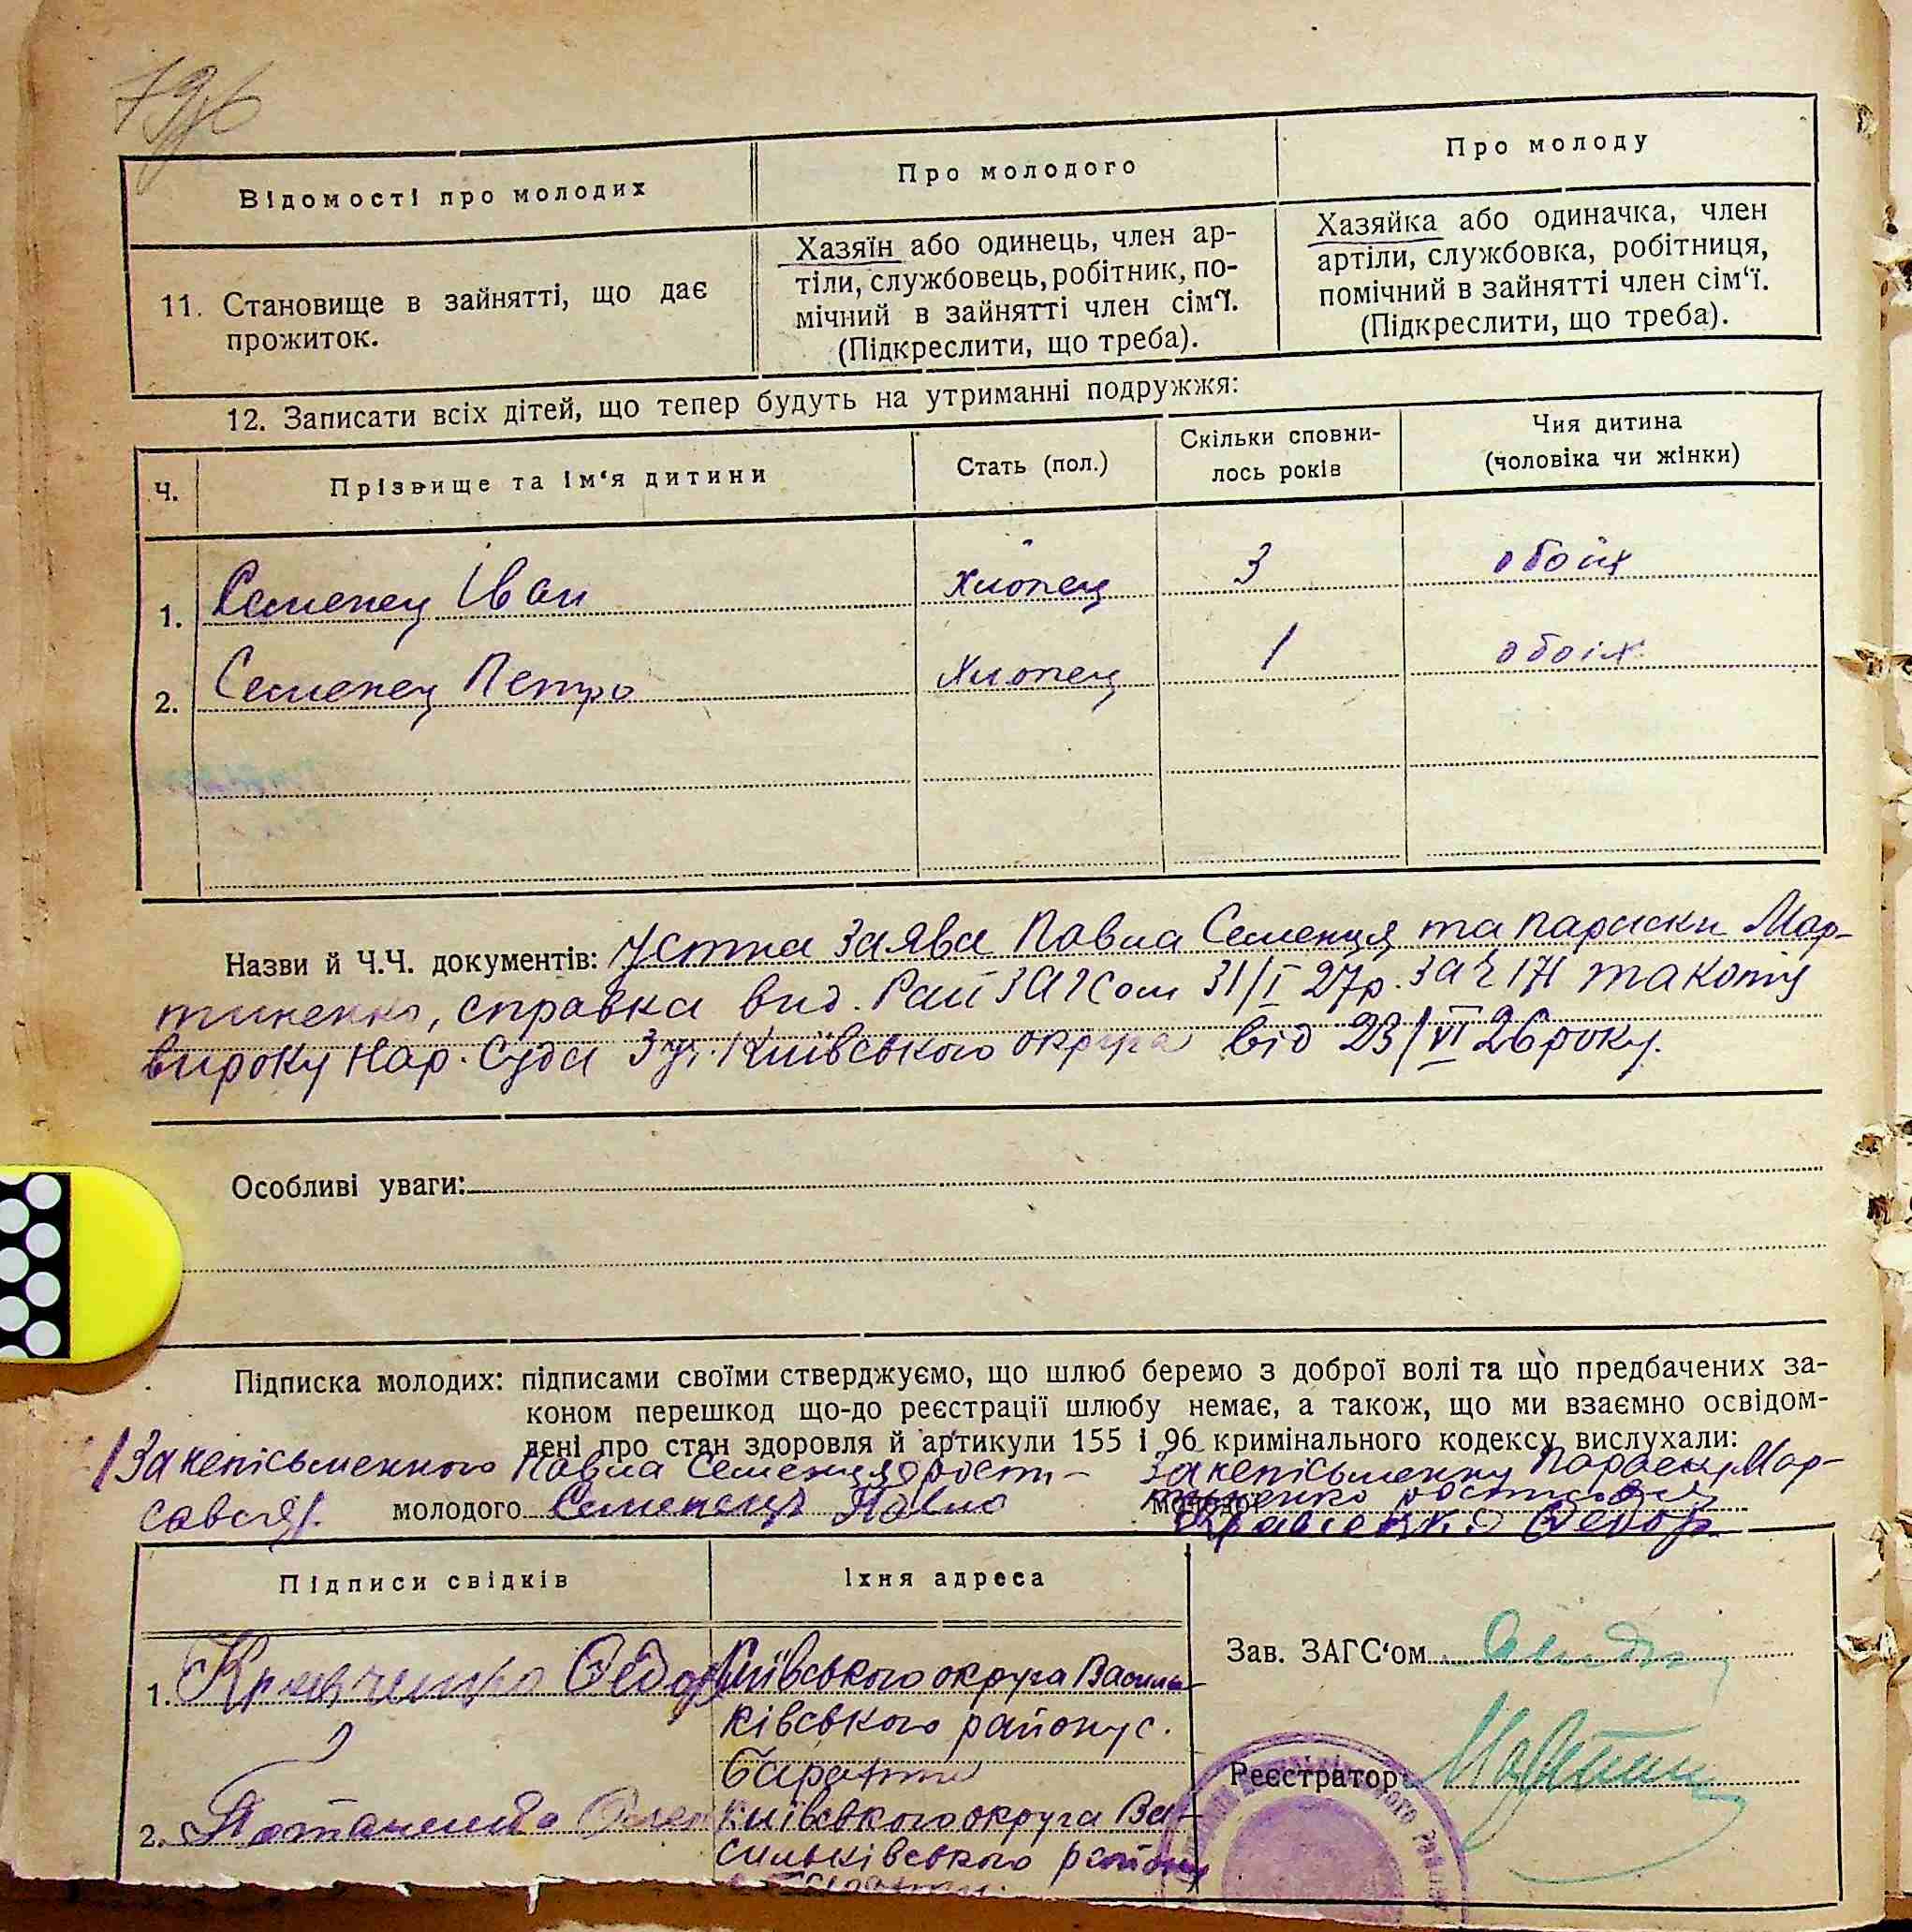 Відомості про молодих
Про молодого
Про молоду
11. Становище в зайнятті, що дає
прожиток.
Хазяїн або одинець, член ар-
тіли, службовець, робітник, по-
мічний в зайнятті член сім‘ї.
(Підкреслити, що треба).
Хазяйка або одиначка, член
артіли, службовка, робітниця,
помічний в зайнятті член сім‘ї.
(Підкреслити, що треба).
12. Записати всіх дітей, що тепер будуть на утриманні подружжя:
Ч.
Прізвище та ім‘я дитини
Стать (пол.)
Скільки сповни-
лось років
Чия дитина
(чоловіка чи жінки)
1. Семенец Іван хлопец 3 обоїх
2. Семенец Петро хлопец 1 обоіх
Назви й Ч.Ч. документів: Устна заява Павла Семенця та Параски Мар-
тиненко, справка вид. Рай ЗАГСом 31/I 27р. за ч 171 та копія
вироку Нар. Суда 3 уч. Київського округа від 23/VI 26 року.
Особливі уваги:
Підписка молодих: підписами своїми стверджуємо, що шлюб беремо з доброї волі та що предбачених за-
коном перешкод що-до реєстрації шлюбу немає, а також, що ми взаємно освідом-
лені про стан здоровля й артикули 155 і 96 кримінального кодексу вислухали:
За непісьменного Павла Семенця рости-
савсяя
молодого Семенець Павло
За непісьменну Параску Мар-
тиненко
молодої
Підписи свідків
Їхня адреса
1. Кравченко Федор
Київського округа Василь-
ківського району с.
2. Потапенко
Київського округа Ва-
сильківського району
Зав. ЗАГС‘ом
Реєстратор